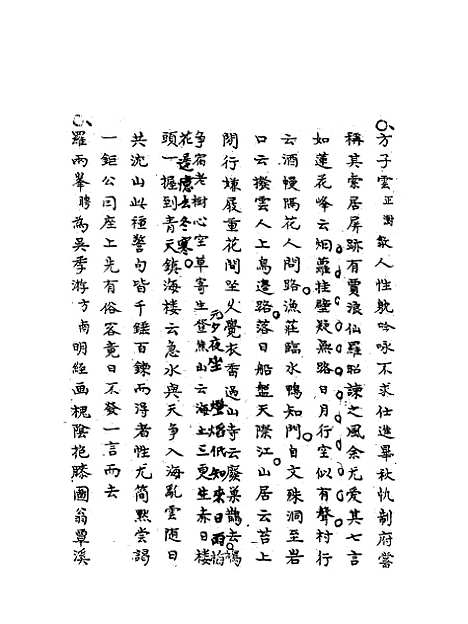 方子雲正澍歙人性躭吟咏不求仕進畢秋帆制府嘗
稱其索居屏跡有賈浪仙羅昭諫之風余尤愛其七言
如蓮花峰云烟蘿挂壁疑無路日月行空似有聲村行
云酒幔隔花人問路漁莊臨水鴨知門自文殊洞至岩
口云撥雲人上鳥邊路落日船盤天際江山居云苔上
閒行嫌屐重花間坐久覺衣香過山寺云廢巢鵲去鴿
元夕夜坐 燈焰低知來日雨梅
花遲憶去冬寒
爭宿老樹心空草寄生登焦山云海上三更生赤日樓
頭一握到青天鎮海樓云急水與天爭入海亂雲随日
共沈山此種警句皆千錘百鍊而得者性尤簡默嘗謁
一鉅公同座上先有俗客竟日不發一言而去
羅兩峯聘為吳季游方南明經画槐陰抱膝圖翁覃溪